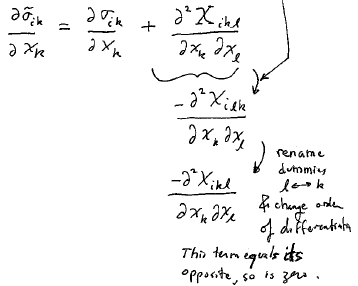 ∂σ̃ik/∂xk = ∂σik/∂xk + ∂²χikl/∂xk ∂xl
-∂²χilk/∂xk ∂xl
rename
dummies
l ↔ k
-∂²χikl/∂xk ∂xl
& change order
of differentiatn
This term equals its
opposite, so is zero.